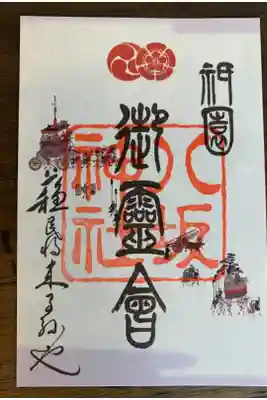 祇園
御靈會
八坂神社
蘇民将来子孫也